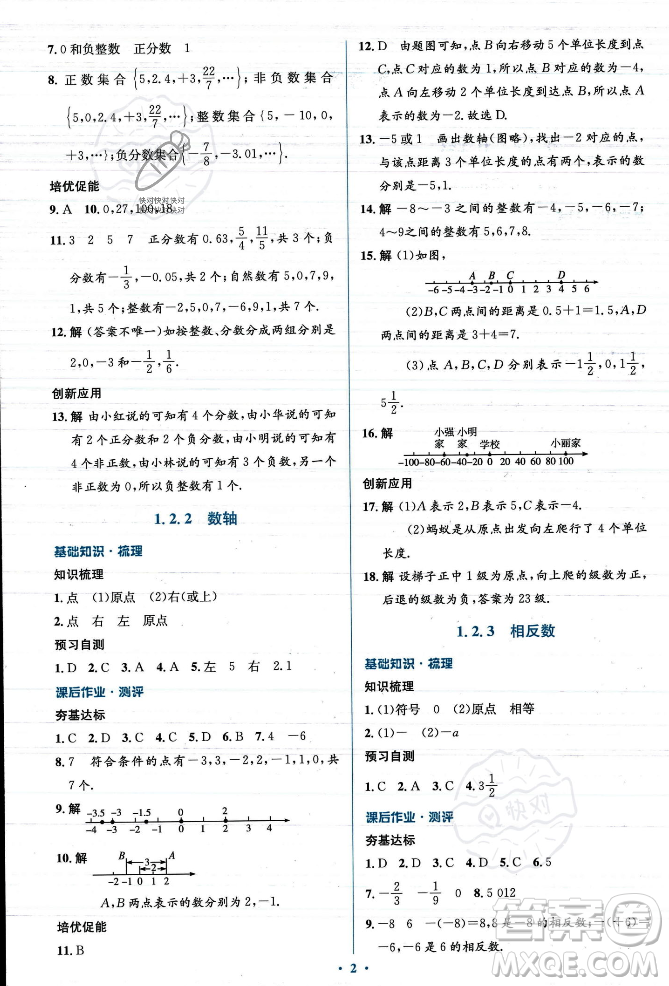 7. 0和负整数　正分数　1
8. 正数集合{5,2.4,+3,22/7,…};非负数集合
{5,0,2.4,+3,22/7,…};整数集合{5,-10,0,
+3,…};负分数集合{-7/8,-3.01,…}.
培优促能
9. A　10. 0,27,100,18
11. 3　2　5　7　正分数有0.63,5/4,11/5,共3个;负
分数有-1/3,-0.05,共2个;自然数有5,0,7,9,
1,共5个;非负有理数有5,0.63,0,5/4,7,11/5,9,
1.
12. 解 (答案不唯一)如按整数、分数分成两组分别是
2,0,-3和-1/2,1/2.
创新应用
13. 解 由小红说的可知有4个分数,由小华说的可知
有2个正分数和2个负分数,由小明说的可知有
4个非正数,由小林说的可知有3个整数,其中
1个非正数为0,所以负整数有1个.
1.2.2　数轴
基础知识·梳理
知识梳理
1. 点　(1)原点　(2)右(或上)
2. 点　右　左　原点
预习自测
1. D　2. C　3. A　4. A　5. 左　5　右　2.1
课后作业·测评
夯基达标
1. C　2. C　3. D　4. B　5. A　6. D　7. 4　-6
8. 7　符合条件的点有-3,3,-2,2,-1,1,0,共
7个.
9. 解
-3.5　-1.5　0　2　4
-4 -3 -2 -1 0 1 2 3 4
10. 解
B　3　A
-2 -1 0 1 2
A,B两点表示的数分别为2,-1.
培优促能
11. B
12. D　由题图可知,点B向右移动5个单位长度到点
C,点C对应的数为1,所以点B对应的数为-4,
点A向左移动2个单位长度到点B,所以点A
表示的数为-2.故选D.
13. -5或1　画出数轴(图略),以表示-2的点为起点,
与该点距离为3个单位长度的点有两个,分别是
表示的数为-5,1.
14. 解 -8～-3之间的整数有-7,-6,-5,-4;
4～9之间的整数有5,6,7,8.
15. 解 (1)如图,
A　B　C
-6 -5 -4 -3 -2 -1 0 1 2 3 4 5 6
(2)B,C两点间的距离是0.5+1=1.5,A,D
两点间的距离是3+4=7.
(3)点A,B,C,D分别表示-1 1/2,0,1 1/2,
5 1/2.
16. 解
小强 小明
家　家　学校　小丽家
-100 -80 -60 -40 -20 0 20 40 60 80 100
创新应用
17. 解 (1)A表示2,B表示5,C表示-4.
(2)蚂蚁是从原点出发向左爬行了4个单位
长度.
18. 解 设梯子正中1级为原点,向上爬的级数为正,
后退的级数为负,答案为23级.
1.2.3　相反数
基础知识·梳理
知识梳理
1. (1)符号　0　(2)原点　相等
2. (1)-　(2)-a
预习自测
1. C　2. A　3. C　4. 3 1/2
课后作业·测评
夯基达标
1. D　2. A　3. D　4. B　5. C　6. 5
7. -2/3　-1/9　0　8. 5 012
9. -8　6　-(-8)=8,8是-8的相反数　-(+6)=
-6,-6是6的相反数
2
快对快对快对
快对
答案圈
MXQE.COM